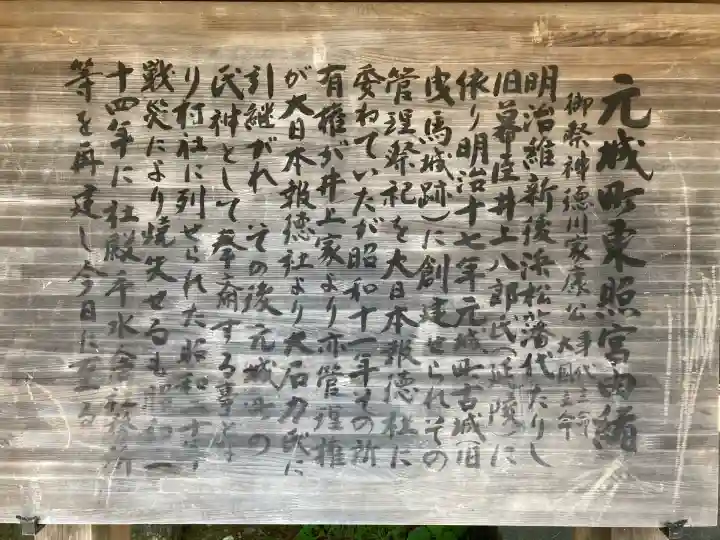 元城町東照宮由緒
御祭神徳川家康公 事代主命 大国主命
明治維新後浜松藩代たりし
旧幕臣井上八郎氏(延陵)に
依り明治十七年元城町古城(旧
曳馬城跡)に創建せられその
管理祭祀を大日本報徳社に
委わていたが昭和十一年その所
有権が井上家より亦管理権
が大日本報徳社より大石力氏に
引継がれ その後元城町の
氏神として奉斎する事とな
り村社に列せられた昭和二十年
戦災により焼失せるも昭和三
十四年に社殿手水舎社務所
等を再建し今日に至る